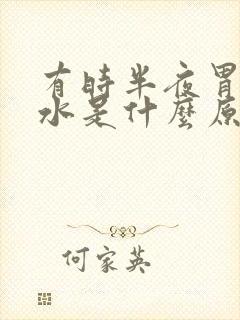 有時半夜胃
水是什麼原
何家英